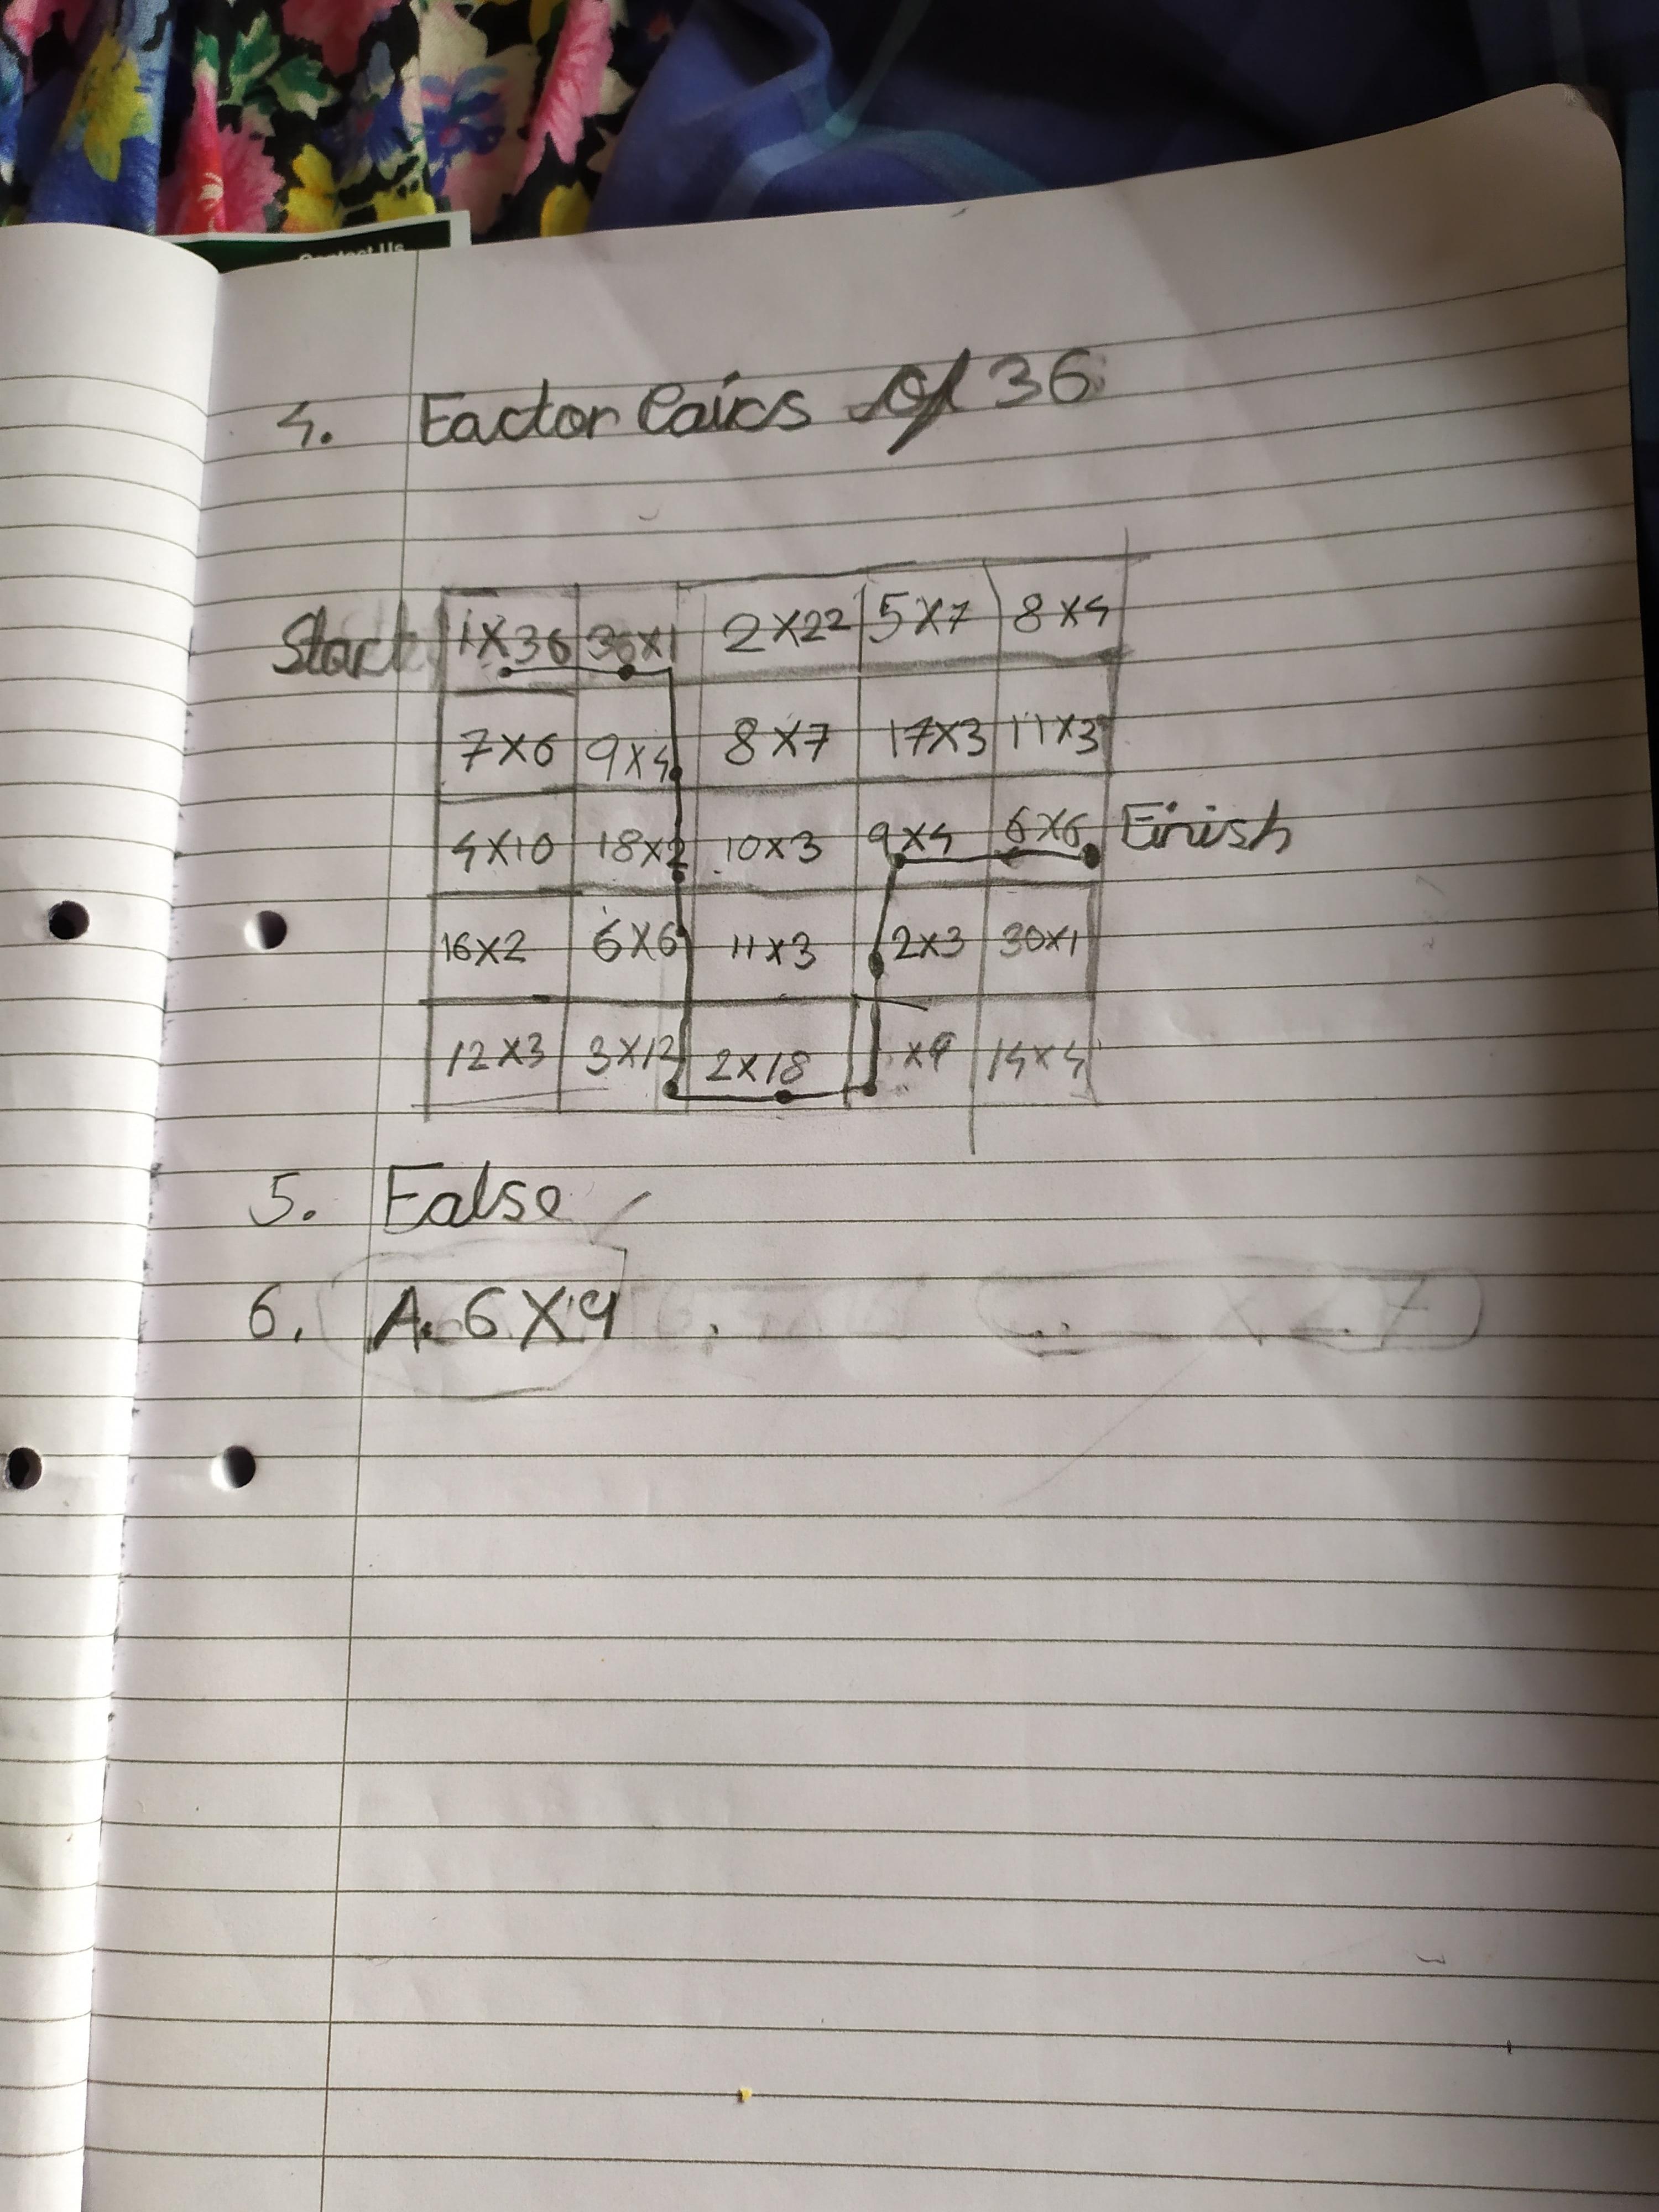 Contact Us
4. Factor Pairs of 36
Start 1X36 36X1 2X22 5X7 8X4
7X6 9X4 8X7 17X3 11X3
4X10 18X2 10X3 9X4 6X6 Finish
16X2 6X6 11X3 2X3 30X1
12X3 3X12 2X18 X9 14X4
5. False
6. A. 6X9